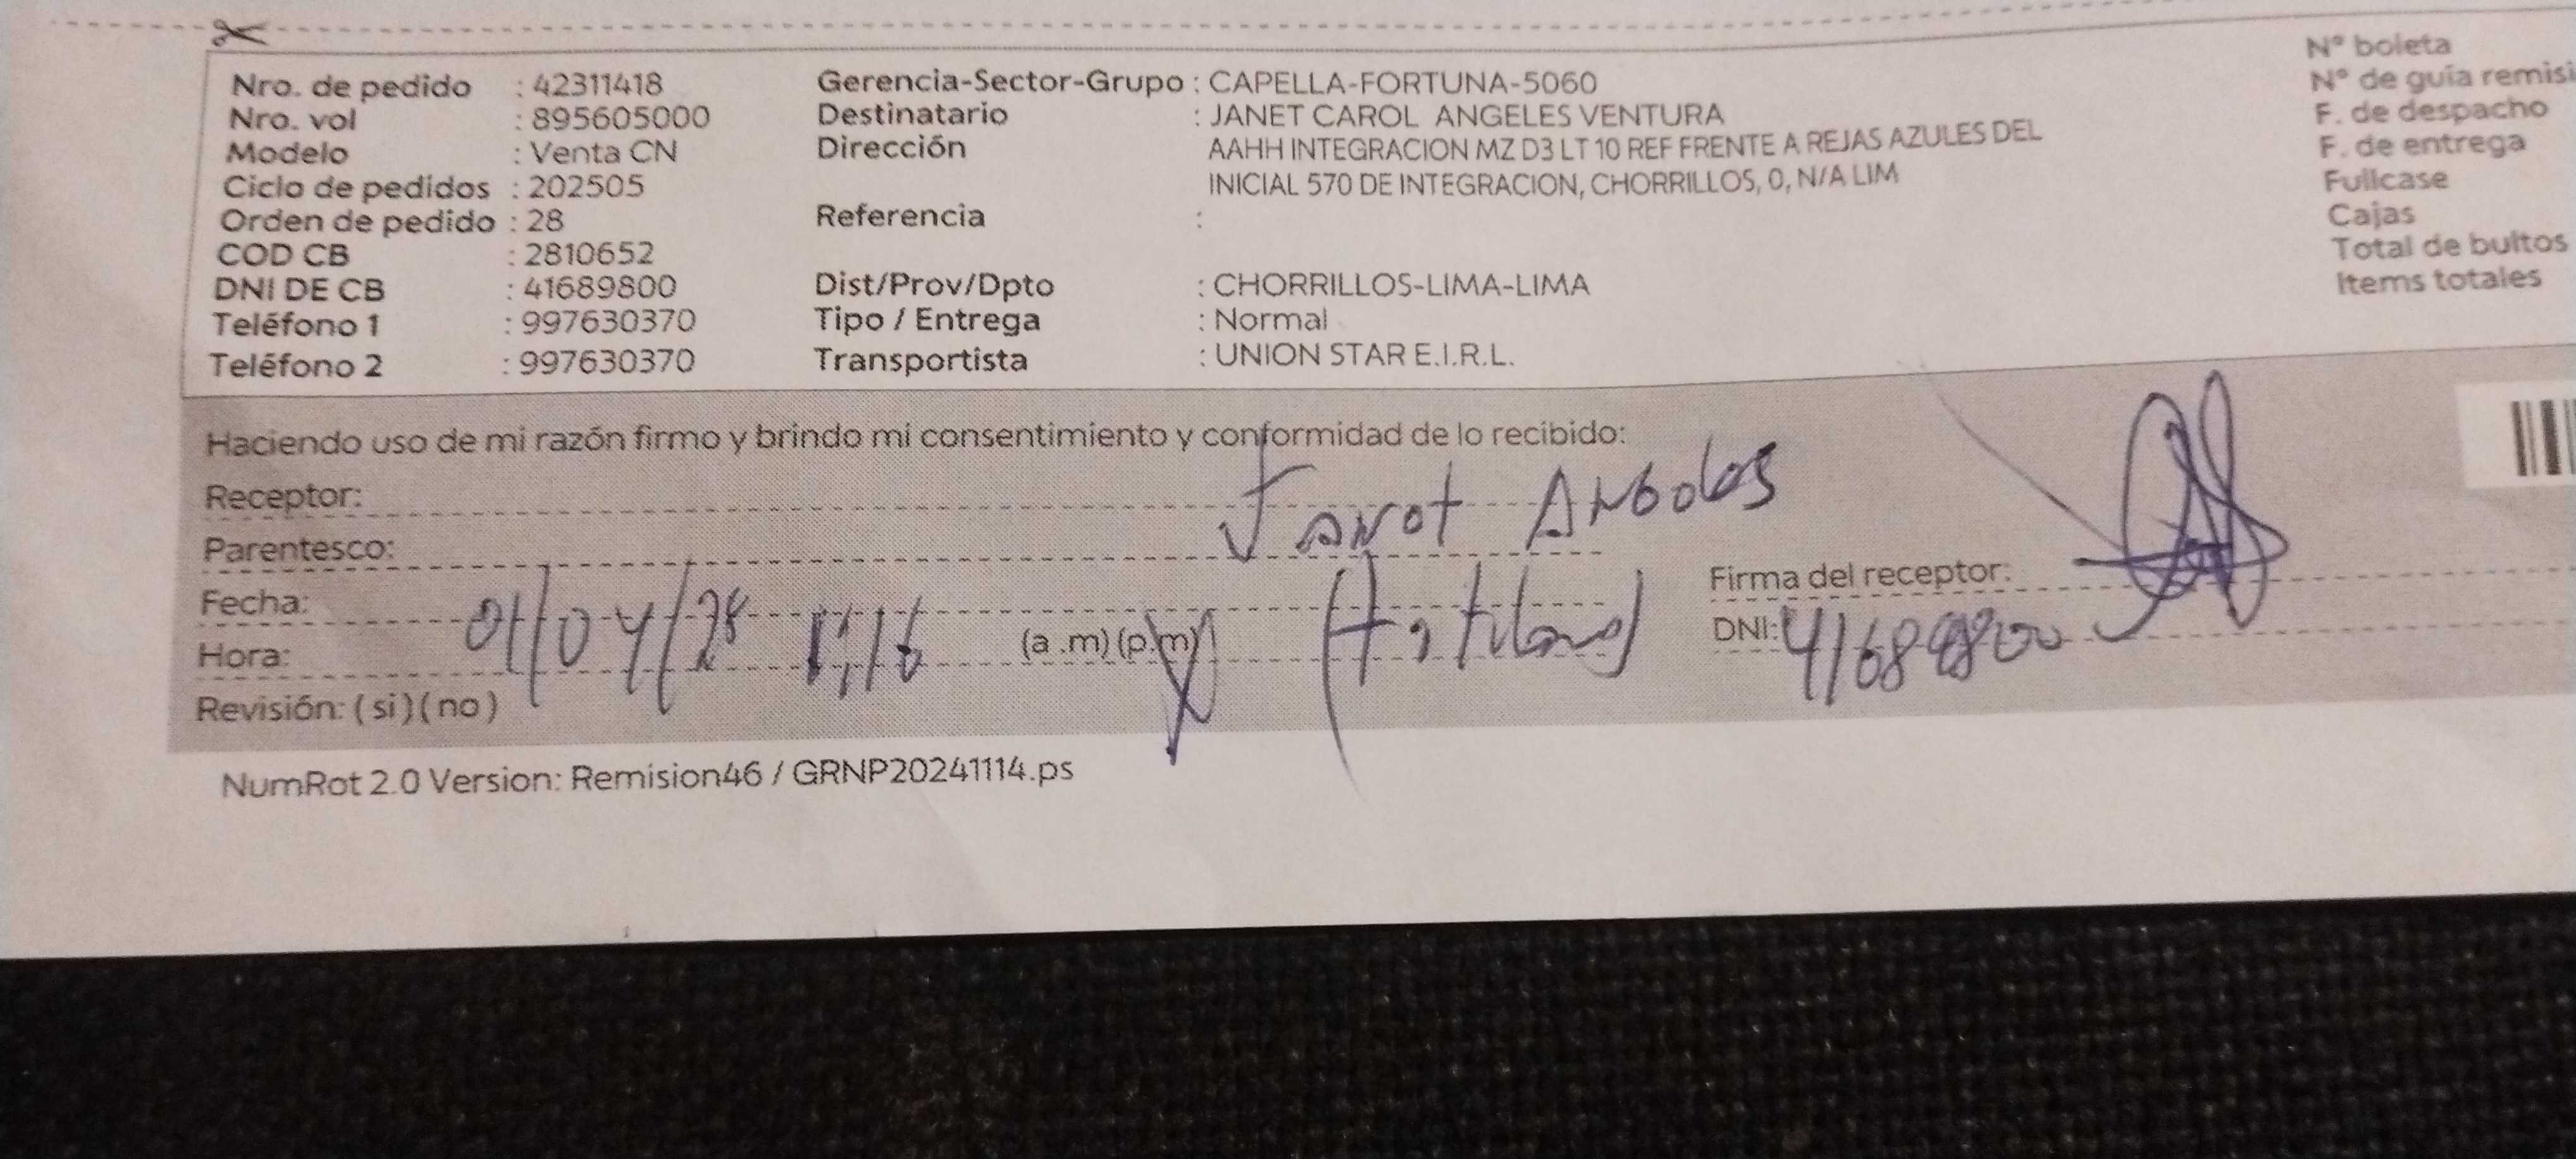 Nro. de pedido : 42311418 Gerencia-Sector-Grupo : CAPELLA-FORTUNA-5060 N° boleta
Nro. vol : 895605000 Destinatario : JANET CAROL ANGELES VENTURA N° de guía remisi
Modelo : Venta CN Dirección AAHH INTEGRACION MZ D3 LT 10 REF FRENTE A REJAS AZULES DEL F. de despacho
Ciclo de pedidos : 202505 INICIAL 570 DE INTEGRACION, CHORRILLOS, 0, N/A LIM F. de entrega
Orden de pedido : 28 Referencia : Fullcase
COD CB : 2810652 Cajas
DNI DE CB : 41689800 Dist/Prov/Dpto : CHORRILLOS-LIMA-LIMA Total de bultos
Teléfono 1 : 997630370 Tipo / Entrega : Normal Items totales
Teléfono 2 : 997630370 Transportista : UNION STAR E.I.R.L.
Haciendo uso de mi razón firmo y brindo mi consentimiento y conformidad de lo recibido:
Receptor: Janet Angeles
Parentesco: (titular)
Fecha: 01/04/ Firma del receptor:
Hora: (a .m) (p.m) DNI: 41689800
Revisión: ( si ) ( no )
NumRot 2.0 Version: Remision46 / GRNP20241114.ps